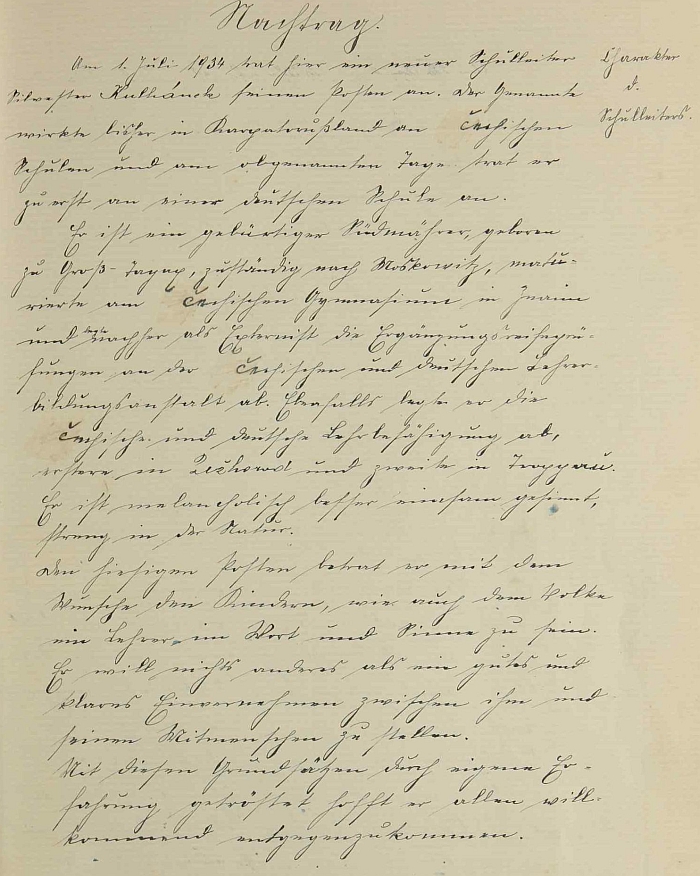 Nachtrag.
Am 1. Juli 1934 trat hier ein neuer Schulleiter
Silvester seinen Posten an. Der Genannte
wirkte bisher in Karpatorußland an čechischen
Schulen und am obgenannten Tage trat er
zu erst an einer deutschen Schule an.
Er ist ein gebürtiger Südmährer, geboren
zu Groß-Tajax, zuständig nach Moskowitz, matu-
rierte am čechischen Gymnasium in Znaim
und legte nachher als Externist die Ergänzungsreifeprü-
fungen an der čechischen und deutschen Lehrer-
bildungsanstalt ab. Ebenfalls legte er die
čechische und deutsche Lehrbefähigung ab,
erstere in und zweite in Troppau.
Er ist melancholisch besser einsam gesinnt,
streng in der Natur.
Den hiesigen Posten betrat er mit dem
Wunsche den Kindern, wie auch dem Volke
ein Lehrer im Wort und Sinne zu sein.
Er will nichts anderes als ein gutes und
klares Einvernehmen zwischen ihm und
seinen Mitmenschen zu stellen.
Mit diesen Grundsätzen durch eigene Er-
fahrung getröstet hofft er allen will-
kommend entgegenzukommen.
Charakter
d.
Schulleiters.